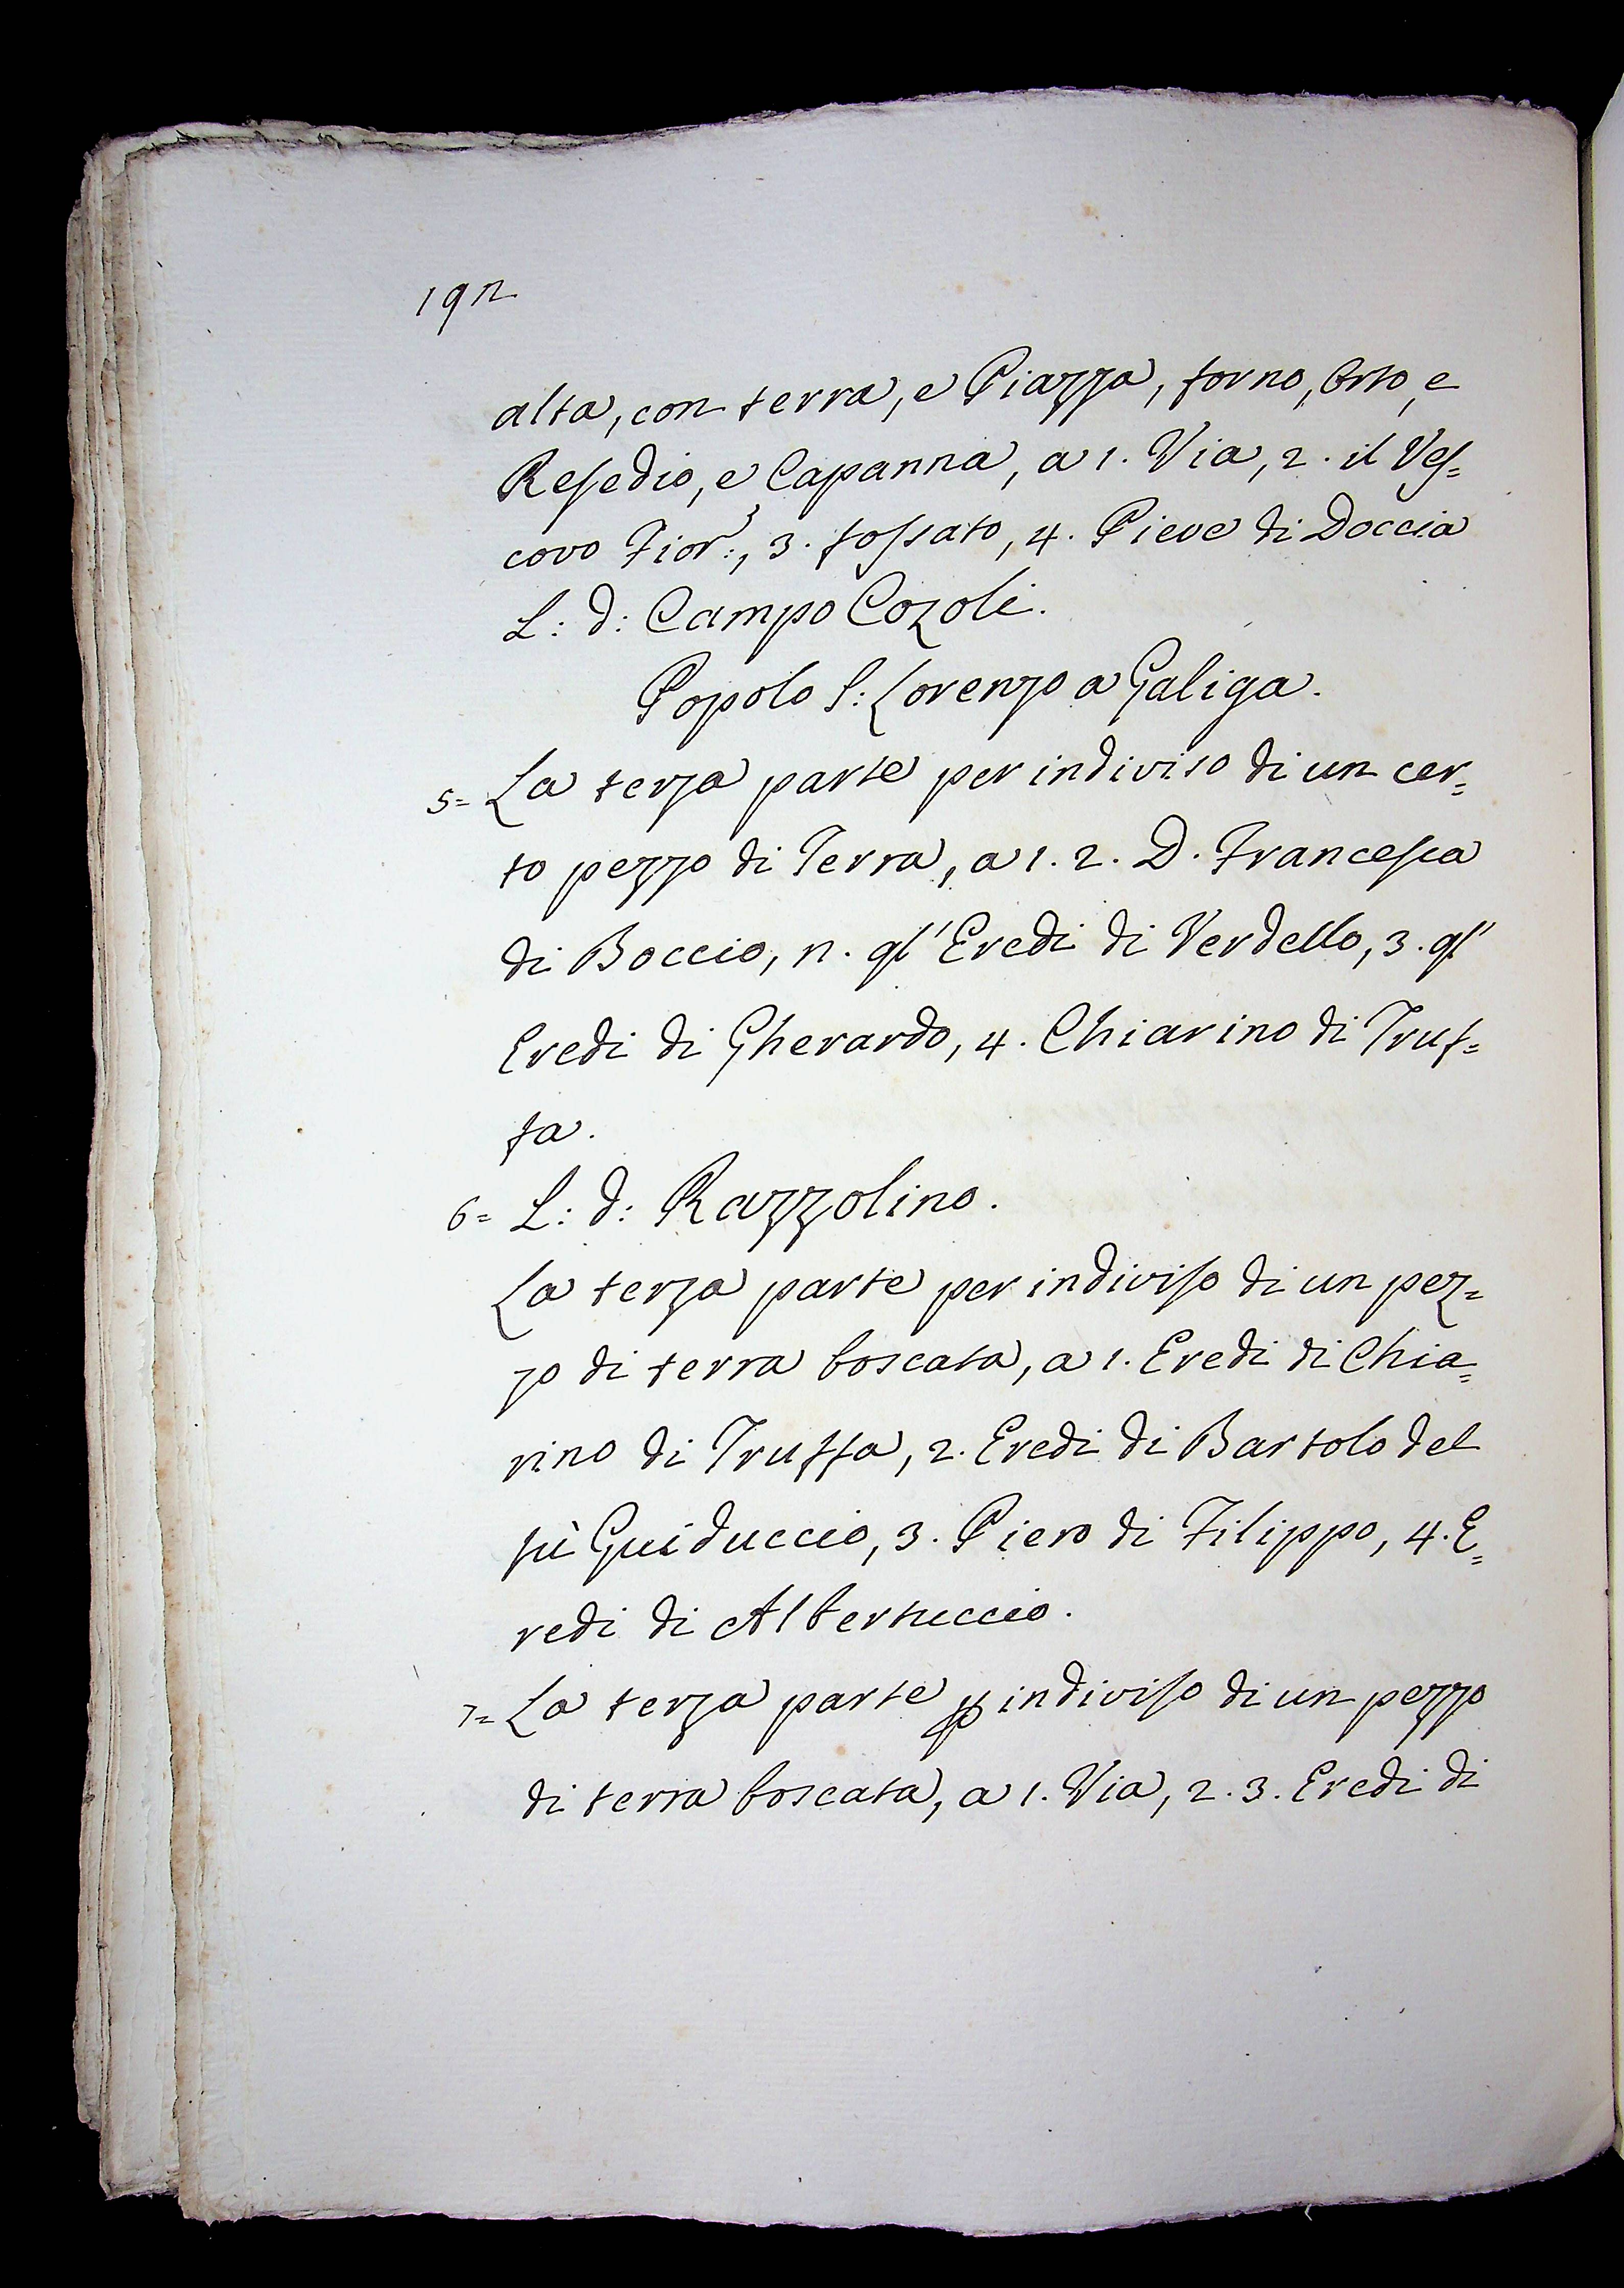 192
alta, con terra, e Piazza, forno, Orto, e
Resedio, e Capanna, a 1. Via, 2. il Ves=
covo Fior:, 3. fossato, 4. Pieve di Doccia
L: d: Campo Cozoli.
Popolo S: Lorenzo a Galiga.
5= La terza parte per indiviso di un cer=
to pezzo di Terra, a 1. 2. D. Francesca
di Boccio, 2. gl' Eredi di Verdello, 3. gl'
Eredi di Gherardo, 4. Chiarino di Truf=
fa.
6= L: d: Razzolino.
La terza parte per indiviso di un pez=
zo di terra boscata, a 1. Eredi di Chia=
rino di Truffa, 2. Eredi di Bartolo del
fù Guiduccio, 3. Piero di Filippo, 4. E=
redi di Albertuccio.
7= La terza parte ꝑ indiviso di un pezzo
di terra boscata, a 1. Via, 2. 3. Eredi di